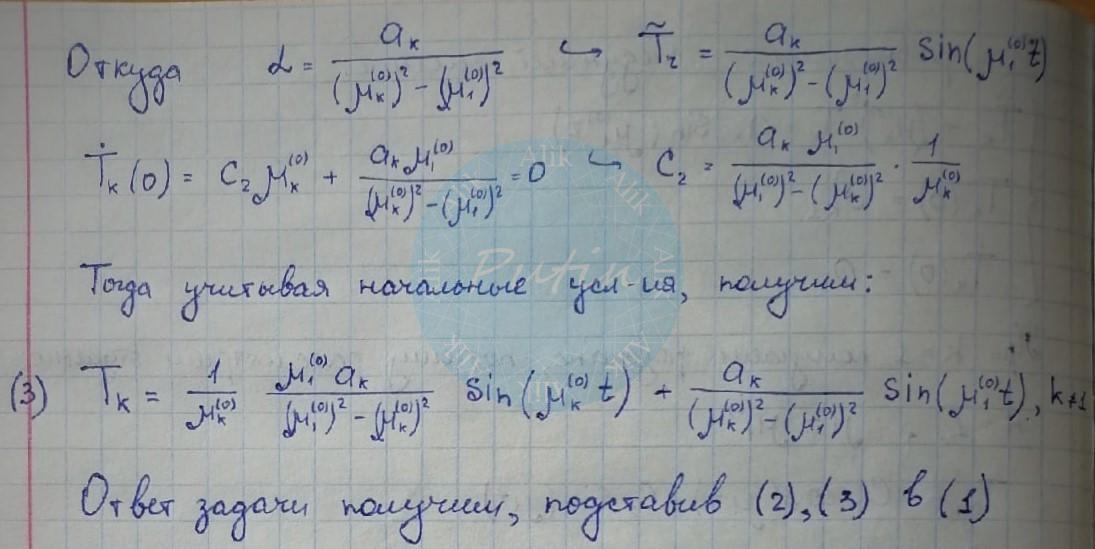 Откуда α = a_k / ((μ_k^(0))² − (μ_1^(0))²) ↪ T̃_r = a_k / ((μ_k^(0))² − (μ_1^(0))²) sin(μ_1^(0) t)
Ṫ_k(0) = C_2 μ_k^(0) + a_k μ_1^(0) / ((μ_k^(0))² − (μ_1^(0))²) = 0 ↪ C_2 = a_k μ_1^(0) / ((μ_1^(0))² − (μ_k^(0))²) · 1 / μ_k^(0)
Тогда учитывая начальные усл-ия, получим:
(3) T_k = 1 / μ_k^(0) μ_1^(0) a_k / ((μ_1^(0))² − (μ_k^(0))²) sin(μ_k^(0) t) + a_k / ((μ_k^(0))² − (μ_1^(0))²) sin(μ_1^(0) t), k≠1
Ответ задачи получим, подставив (2), (3) в (1)
Alik Alik Alik Alik Alik Alik Alik
Putin